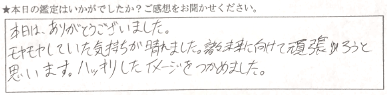 ★本日の鑑定はいかがでしたか？ご感想をお聞かせください。
本日は、ありがとうございました。
モヤモヤしていた気持ちが晴れました。未来に向けて頑張ろうと
思います。ハッキリしたイメージをつかめました。